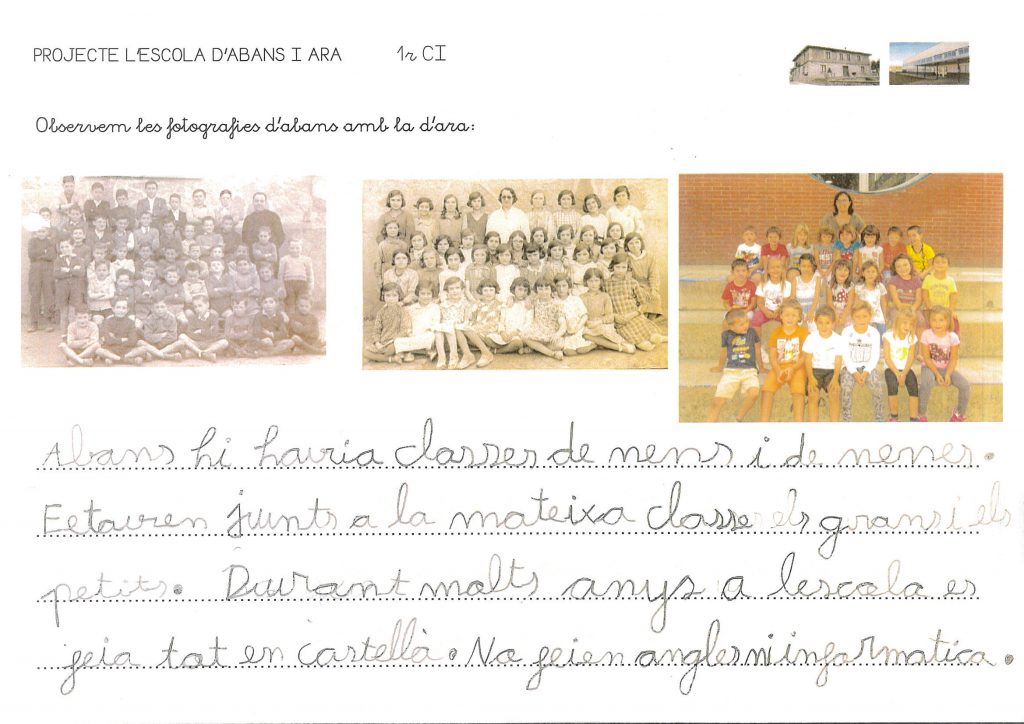 PROJECTE L'ESCOLA D'ABANS I ARA 1r CI
Observem les fotografies d'abans amb la d'ara:
Abans hi havria classes de nens i de nenes.
Eetavren junts a la mateixa classe els grans i els
petits. Durant molts anys a lescola es
feia tot en castellà. No feien angles ni informatica.